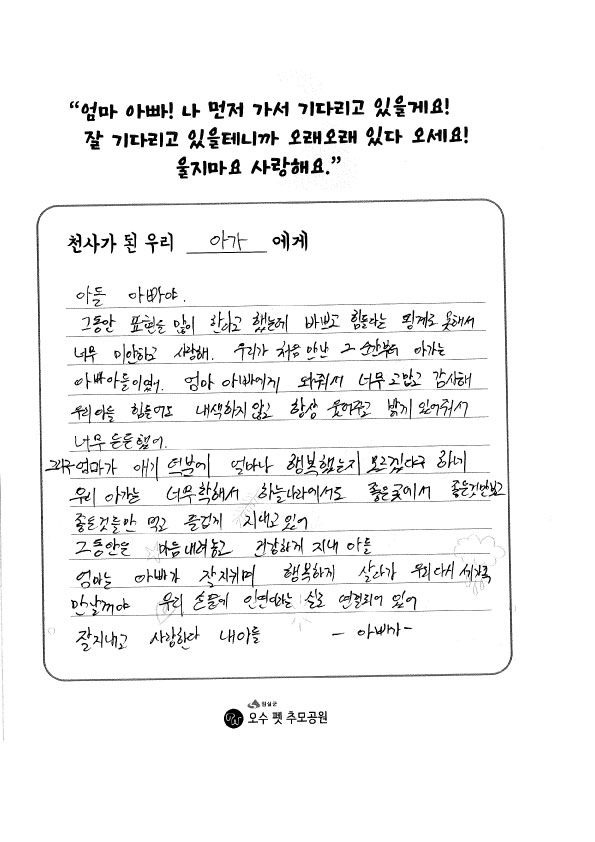 “엄마 아빠! 나 먼저 가서 기다리고 있을게요!
잘 기다리고 있을테니까 오래오래 있다 오세요!
울지마요 사랑해요.”
천사가 된 우리 아가 에게
아들 아빠야.
그동안 표현을 많이 한다고 했는데 바쁘고 힘들다는 핑계로 못해서
너무 미안하고 사랑해. 우리가 처음 만난 그 순간부터 아가는
아빠아들이였어. 엄마 아빠에게 와줘서 너무 고맙고 감사해
우리아들 힘들어도 내색하지 않고 항상 웃어주고 밝게 있어줘서
너무 든든했어.
그리구 엄마가 애기 덕분에 얼마나 행복했는지 모르겠다구 하네
우리 아가는 너무 착해서 하늘나라에서도 좋은곳에서 좋은것만보고
좋은것들만 먹고 즐겁게 지내고 있어
그동안은 마음 내려놓고 건강하게 지내 아들
엄마는 아빠가 잘지키며 행복하게 살다가 우리 다시 세가족
만날꺼야 우리 손목에 인연이라는 실로 연결되어 있어
잘지내고 사랑한다 내아들 - 아빠가 -
임실군
오수 펫 추모공원